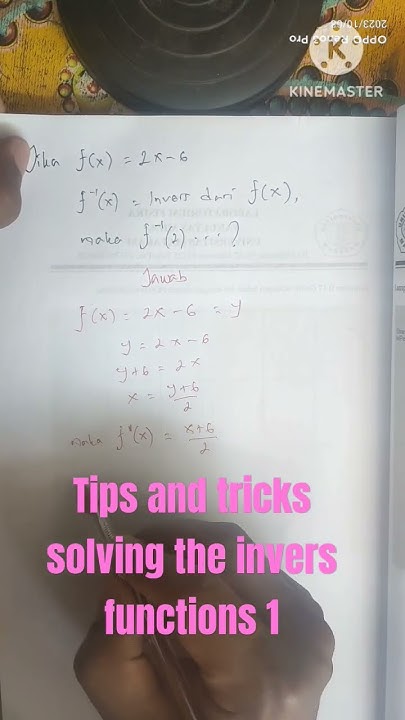 2023/10/02
OPPO Reno8 Pro
KINEMASTER
Jika f(x) = 2x-6
f⁻¹(x) = Invers dari f(x),
maka f⁻¹(2) ...?
Jawab
f(x) = 2x - 6 = y
y = 2x-6
y+6 = 2x
x = y+6/2
maka f⁻¹(x) = x+6/2
Tips and tricks
solving the invers
functions 1